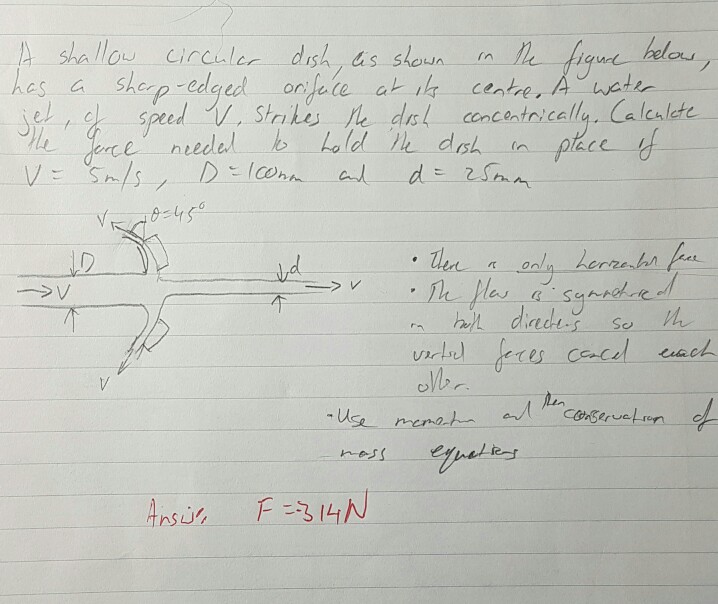 A shallow circular dish, as shown in the figure below,
has a sharp-edged orifice at its centre. A water
jet, of speed V, strikes the dish concentrically. Calculate
the force needed to hold the dish in place if
V = 5m/s, D = 100mm and d = 25mm
V θ=45°
D
d
V
V
V
• There is only horizontal force
• The flow is symmetrical
in both directions so the
vertical forces cancel each
other.
• Use momentum and then conservation of
mass equations
Answer F = -314N